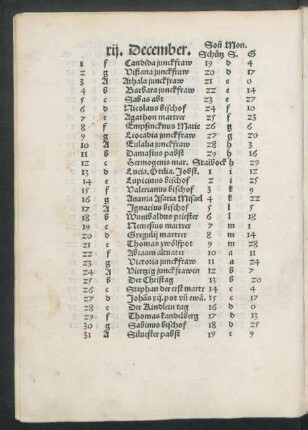 Soñ Mon.
xij. December. Schütz S. G
1 f Candida junckfraw 19 d 4
2 g Visiana junckfraw 20 d 17
3 A Athala junckfraw 21 e 0
4 B Barbara junckfraw 22 e 14
5 c Sabas abt 23 e 27
6 d Nicolaus bischof 24 f 10
7 e Agathon martrer 25 f 23
8 f Empfencknus Marie 26 g 6
9 g Leocadia junckfraw 27 g 20
10 A Eulalia junckfraw 28 h 3
11 B Damasus pabst 29 h 16
12 c Hermogens mar. Staibock h 29
13 d Lucia, Otilia, Jobst. 1 i 12
14 e Lupicinus bischof 2 i 25
15 f Valerianus bischof 3 k 9
16 g Anania Asaria Misael 4 k 22
17 A Ignacius bischof 5 l 5
18 B Wunibaldus priester 6 l 18
19 c Nemesius martrer 7 m 1
20 d martrer 8 m 14
21 e Thomas zwölfpot 9 m 28
22 f Abraam altuater 10 a 11
23 g Victoria junckfraw 11 a 24
24 A Vierzig junckfrawen 12 B 7
25 B Der Christag 13 B 20
26 c Stephan der erst martr 14 c 4
27 d Johãs xij. pot vñ ewã. 15 c 17
28 e Der Kindlein tag 16 d 0
29 f Thomas kandelberg 17 d 13
30 g Sabinus bischof 18 d 25
31 A Siluester pabst 19 e 9